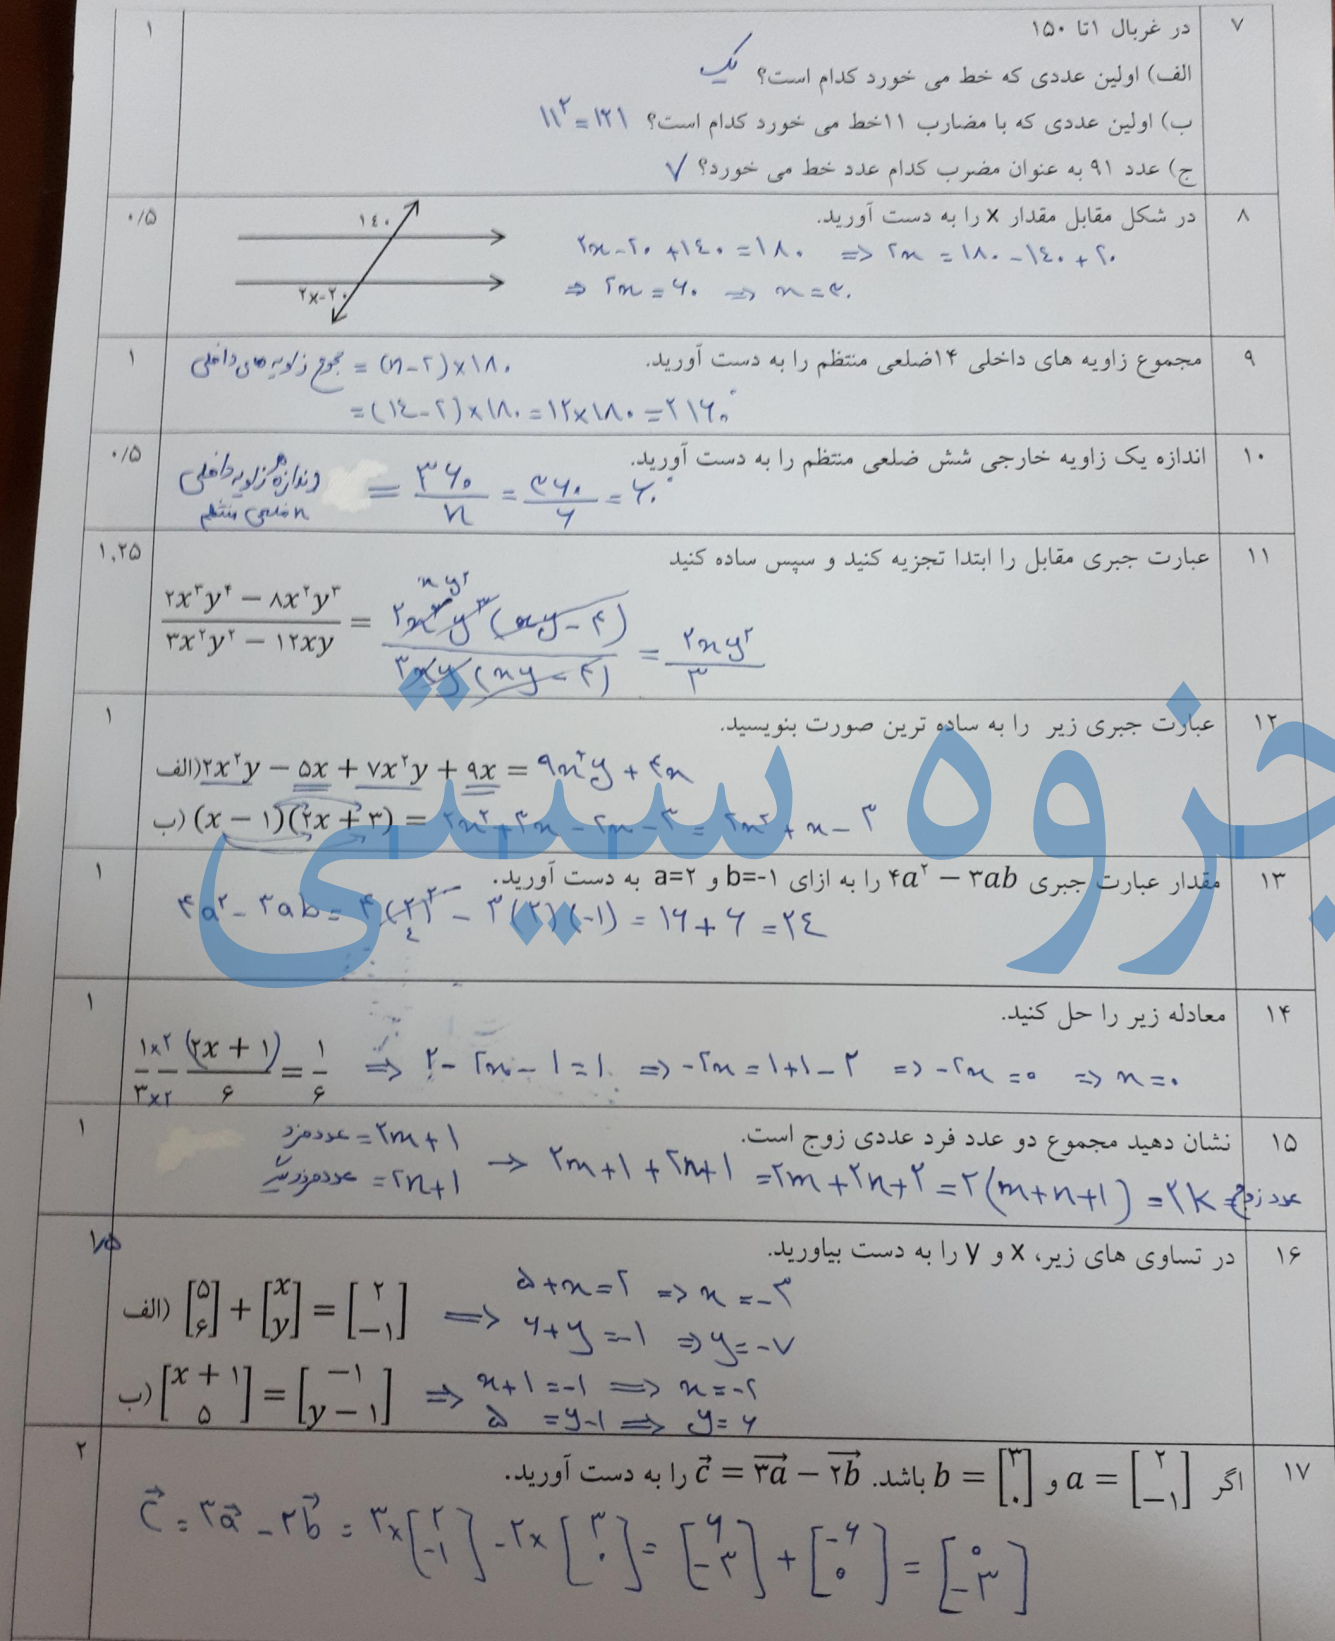 ۷ در غربال ۱تا ۱۵۰ ۱
الف) اولین عددی که خط می خورد کدام است؟ یک
ب) اولین عددی که با مضارب ۱۱خط می خورد کدام است؟ ۱۱^۲ = ۱۲۱
ج) عدد ۹۱ به عنوان مضرب کدام عدد خط می خورد؟ ۷
۸ در شکل مقابل مقدار x را به دست آورید. ۰/۵
۱۴۰
۲x-۲۰
۲x-۲۰+۱۴۰=۱۸۰ => ۲x = ۱۸۰-۱۴۰+۲۰
=> ۲x=۶۰ => x=۳۰
۹ مجموع زاویه های داخلی ۱۴ضلعی منتظم را به دست آورید. ۱
مجموع زاویه های داخلی = (n-۲)×۱۸۰
=(۱۴-۲)×۱۸۰=۱۲×۱۸۰=۲۱۶۰°
۱۰ اندازه یک زاویه خارجی شش ضلعی منتظم را به دست آورید. ۰/۵
اندازه هر زاویه داخلی
n ضلعی منتظم
= ۳۶۰/n = ۳۶۰/۶ = ۶۰°
۱۱ عبارت جبری مقابل را ابتدا تجزیه کنید و سپس ساده کنید ۱,۲۵
(۲x^۳y^۴ − ۸x^۲y^۳)/(۳x^۲y^۲ − ۱۲xy) = ۲x^۲y^۳(xy-۴)/۳xy(xy-۴) = ۲xy^۲/۳
x y^۲
۱۲ عبارت جبری زیر را به ساده ترین صورت بنویسید. ۱
الف) ۲x^۲y − ۵x + ۷x^۲y + ۹x = ۹x^۲y + ۴x
ب) (x − ۱)(۲x + ۳) = ۲x^۲+۳x-۲x-۳ = ۲x^۲+x-۳
جزوه سیتی
۱۳ مقدار عبارت جبری ۴a^۲ − ۳ab را به ازای b=-۱ و a=۲ به دست آورید. ۱
۴a^۲-۳ab= ۴(۲)^۲ - ۳(۲)(-۱) = ۱۶+۶ =۲۴
۴
۱۴ معادله زیر را حل کنید. ۱
۱×۲/۳×۲ − (۲x + ۱)/۶ = ۱/۶ => ۲-۲x-۱=۱ => -۲x=۱+۱-۲ => -۲x=۰ => x=۰
۱۵ نشان دهید مجموع دو عدد فرد عددی زوج است. ۱
عدد فرد = ۲m+۱
عدد فرد دیگر = ۲n+۱
→ ۲m+۱+۲n+۱ =۲m+۲n+۲=۲(m+n+۱) =۲k= عدد زوج
۱۶ در تساوی های زیر، x و y را به دست بیاورید. ۱/۵
الف) [۵ ۶] + [x y] = [۲ −۱] => ۵+x=۲ => x=-۳
۶+y=-۱ => y=-۷
ب) [x + ۱ ۵] = [−۱ y − ۱] => x+۱=-۱ => x=-۲
۵ =y-۱ => y=۶
۱۷ اگر a = [۲ −۱] و b = [۳ ۰] باشد. c⃗ = ۳a⃗ − ۲b⃗ را به دست آورید. ۲
c⃗ = ۳a⃗ - ۲b⃗ = ۳×[۲ -۱] -۲×[۳ ۰] = [۶ -۳] + [-۶ ۰] = [۰ -۳]